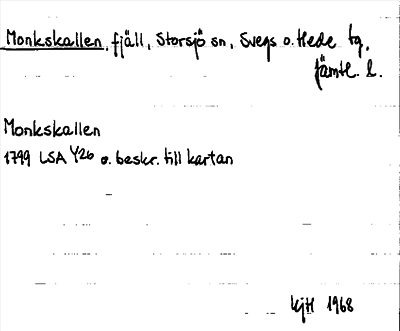 Monkskallen, fjäll, Storsjö sn, Svegs o. Hede tg,
Jämtl. l.
Monkskallen
1799 LSA Y26 o. beskr. till kartan
KjH 1968